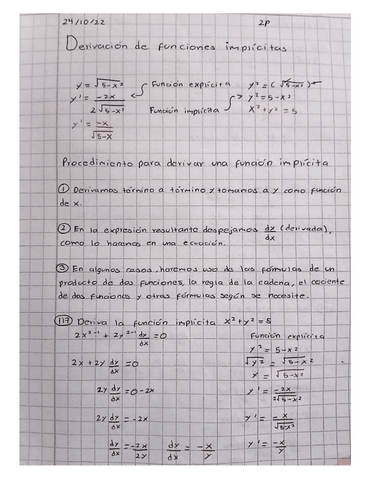 24/10/22 2P
Derivación de funciones implícitas
y = √5-x² Función explícita y² = (√5-x²)²
y' = -2x / 2√5-x² Función implícita y² = 5-x²
x² + y² = 5
y' = -x / √5-x
Procedimiento para derivar una función implícita
① Derivamos término a término y tomamos a y como función
de x.
② En la expresión resultante despejamos dy/dx (derivada),
como lo haremos en una ecuación.
③ En algunos casos, haremos uso de las fórmulas de un
producto de dos funciones, la regla de la cadena, el cociente
de dos funciones y otras fórmulas según se necesite.
117 Deriva la función implícita x²+y²=5
2x²⁻¹ + 2y²⁻¹ dy/dx = 0 Función explícita
y² = 5-x²
2x + 2y dy/dx = 0 √y² = √5-x²
y = √5-x²
2y dy/dx = 0-2x y' = -2x / 2√5-x²
2y dy/dx = -2x y' = -x / √5-x²
dy/dx = -2x/2y dy/dx = -x/y y' = -x/y